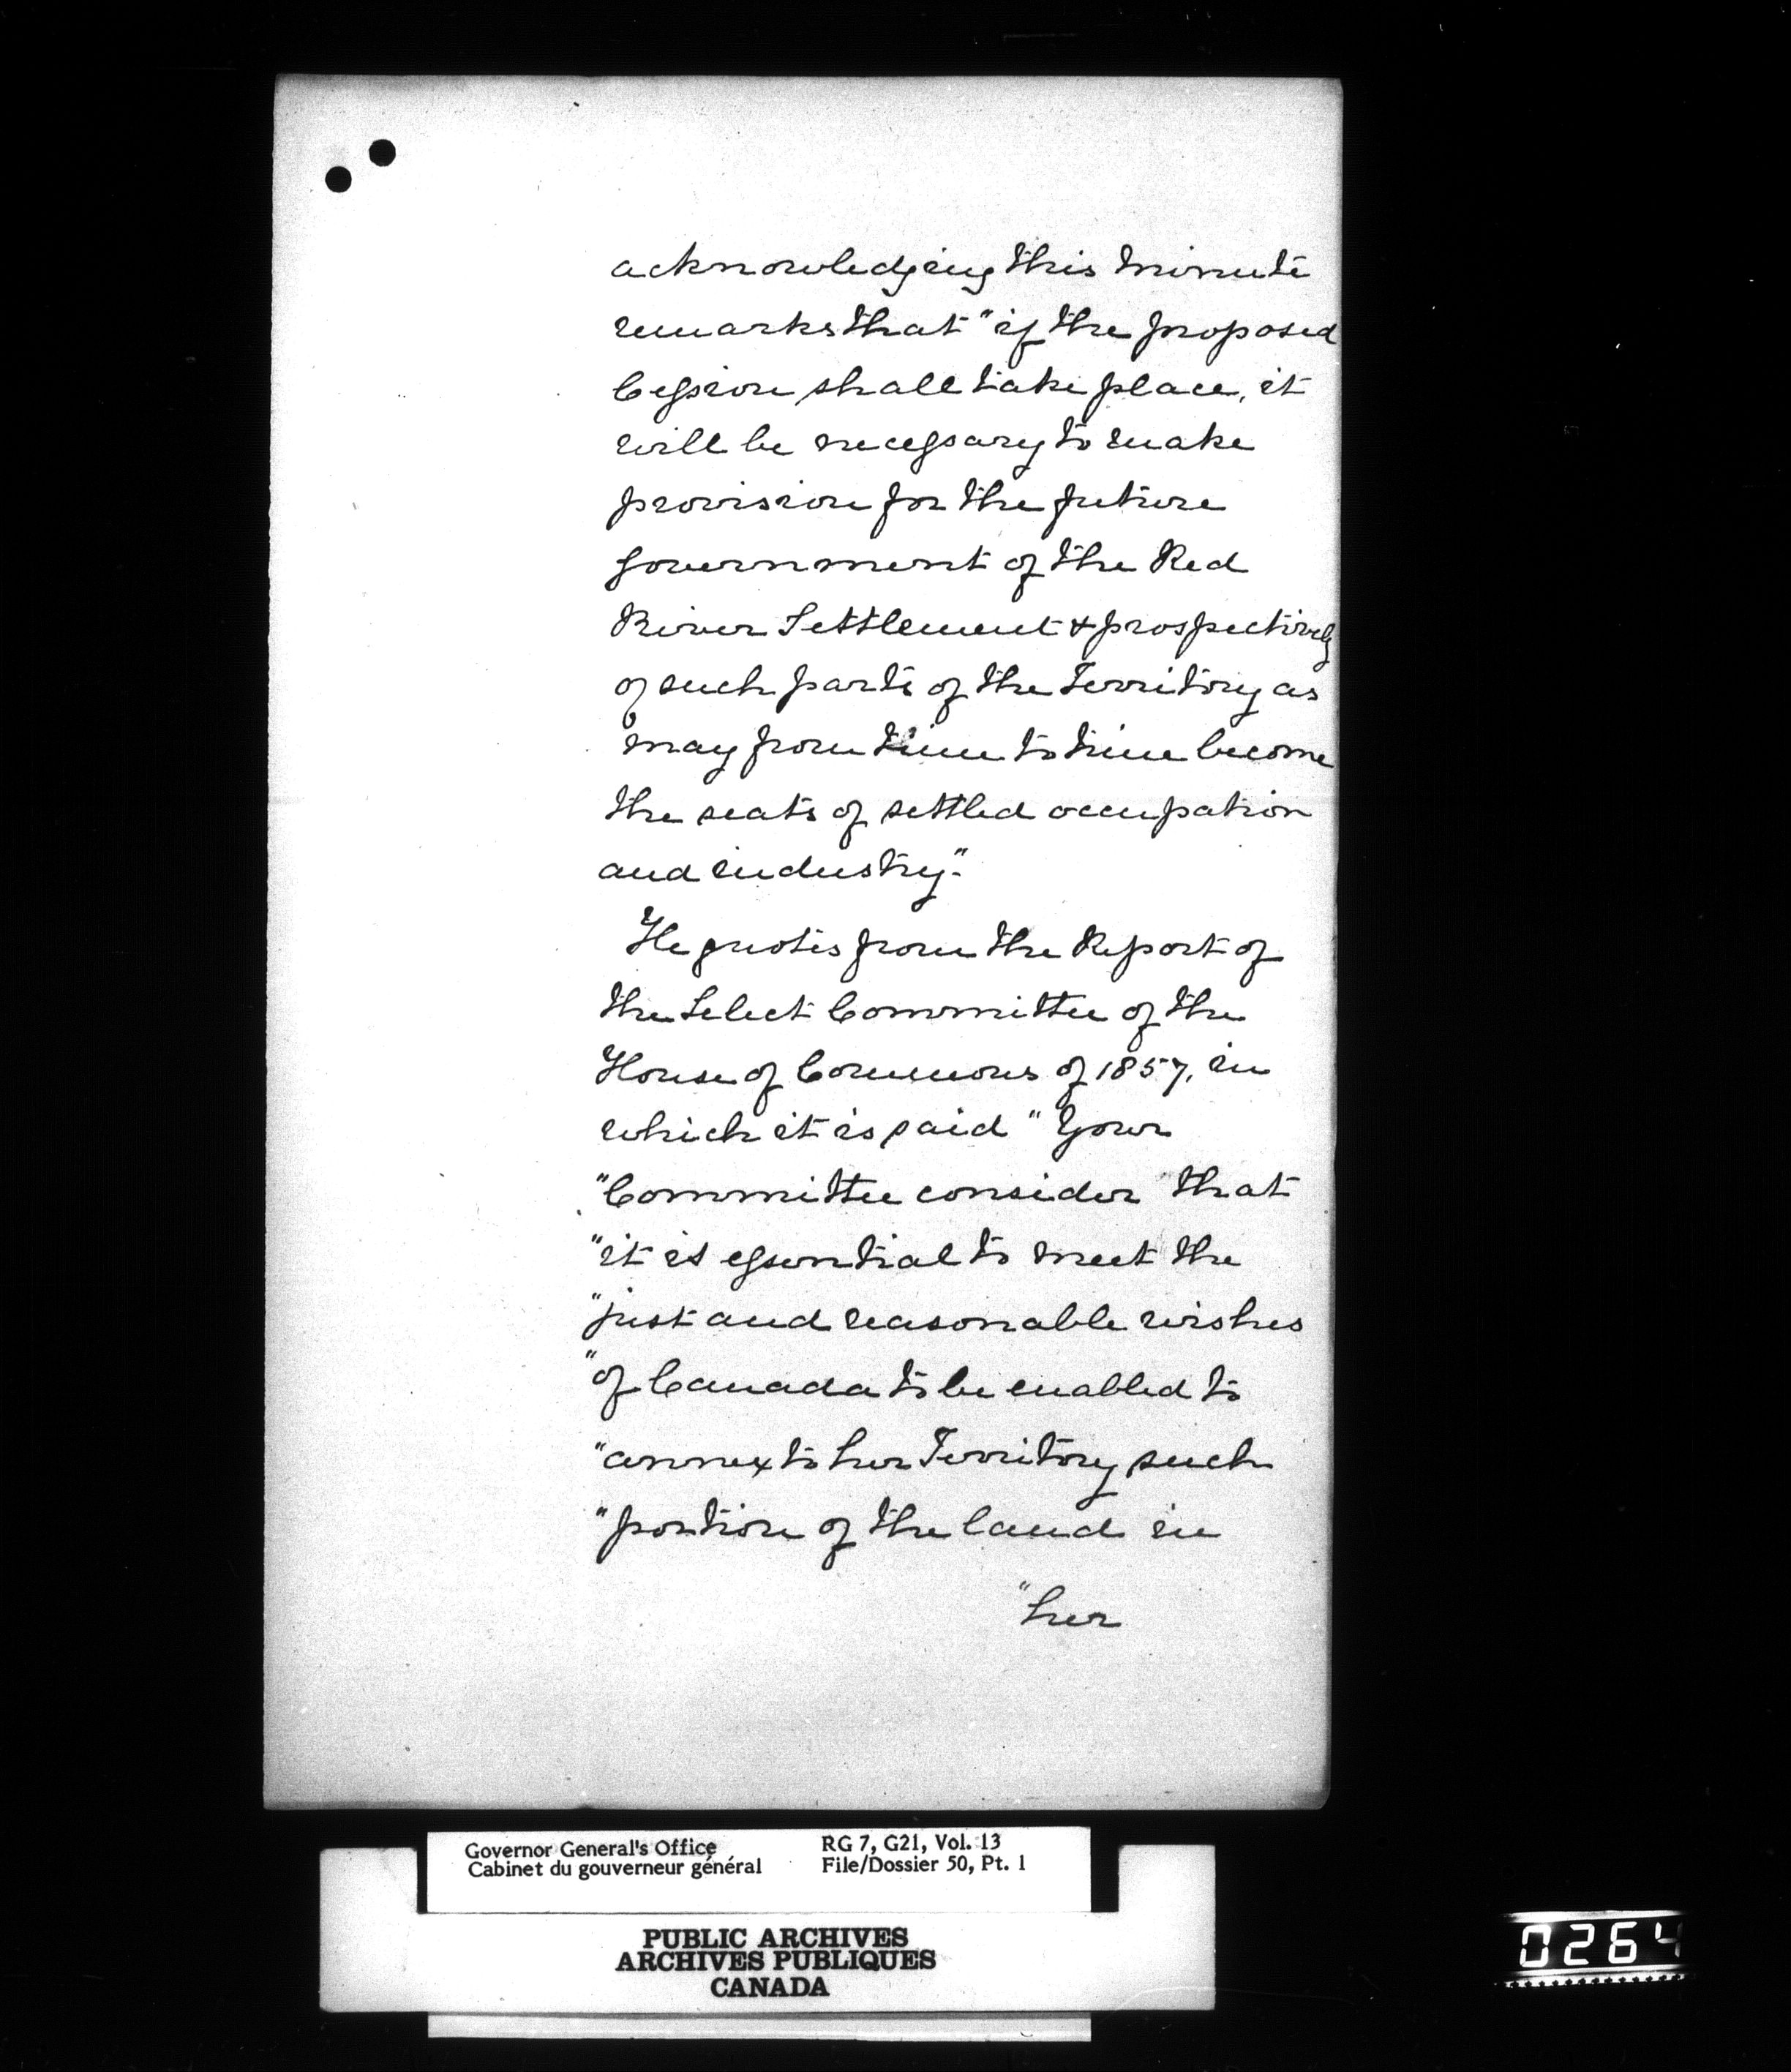 acknowledging this minute
remarks that "if the proposed
Cession shall take place, it
will be necessary to make
provision for the future
government of the Red
River Settlement & prospectively
of such parts of the Territory as
may from time to time become
the seats of settled occupation
and industry."
He quotes from the Report of
the Select Committee of the
House of Commons of 1857, in
which it is said "Your
"Committee consider that
"it is essential to meet the
"just and reasonable wishes
"of Canada to be enabled to
"annex to her Territory such
"portion of the land in
"her
Governor General's Office
Cabinet du gouverneur général
RG 7, G21, Vol. 13
File/Dossier 50, Pt. 1
PUBLIC ARCHIVES
ARCHIVES PUBLIQUES
CANADA
0264